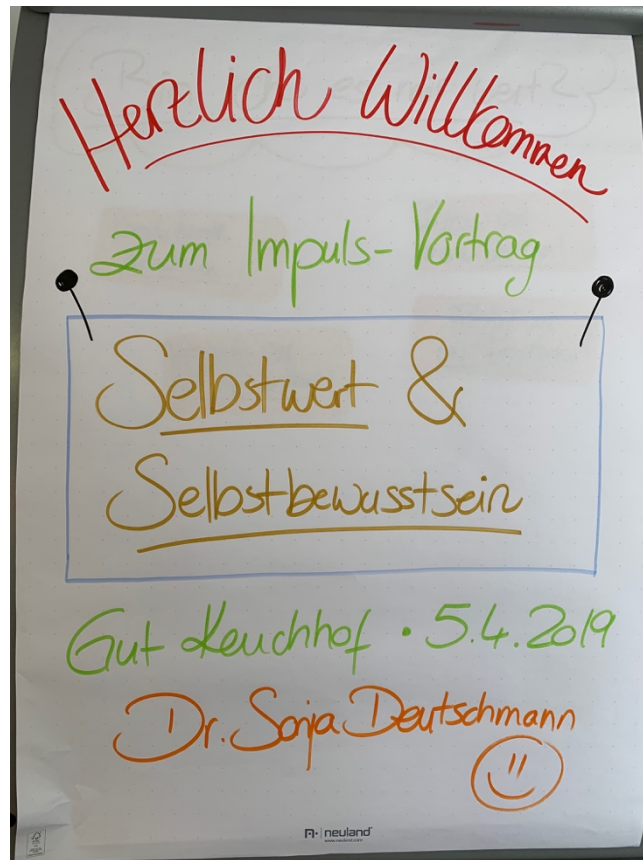 Herzlich Willkommen
zum Impuls-Vortrag
Selbstwert &
Selbstbewusstsein
Gut Keuchhof · 5.4.2019
Dr. Sonja Deutschmann
neuland